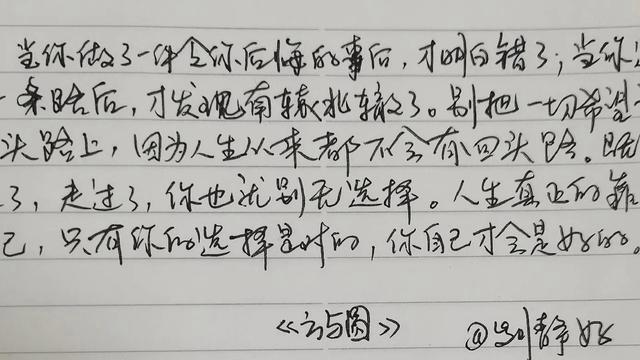 当你做了一件令你后悔的事后，才明白错了；当你
一条路后，才发现南辕北辙了。别把一切希望
头路上，因为人生从来都不会有回头路。既
了，走过了，你也就别无选择。人生真正的靠
己，只有你的选择是对的，你自己才会是好的。
《方与圆》 @ 静好